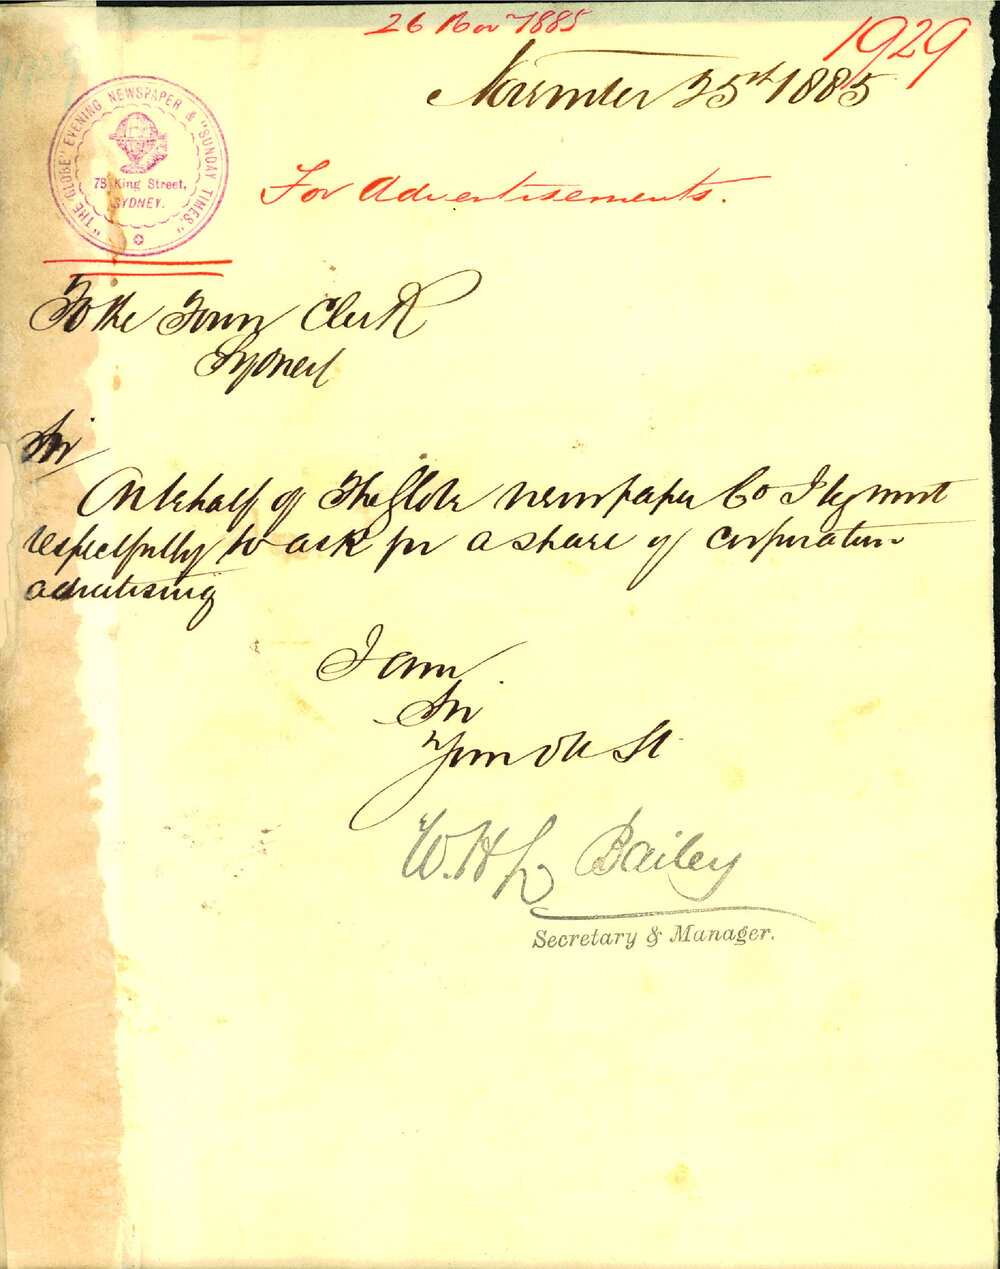 26 Nov 1885
1929
November 25th 1885
"THE "GLOBE" EVENING NEWSPAPER & "SUNDAY TIMES."
78 King Street,
SYDNEY.
For Advertisements.
To the Town Clerk
Sydney
Sir
On behalf of The Globe newspaper Co I beg most
respectfully to ask for a share of corporation
advertising
I am
Sir
Your Obt St
W. H. L. Bailey
Secretary & Manager.